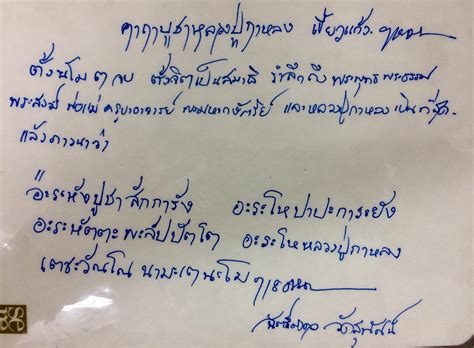 คาถาบูชาหลวงปู่กาหลง เขี้ยวแก้ว
ตั้งนโม ๓ จบ ตั้งจิตเป็นสมาธิ รำลึกถึง พระพุทธ พระธรรม
พระสงฆ์ พ่อแม่ ครูบาอาจารย์ พรหมหากษัตริย์ และหลวงปู่กาหลง เป็นที่สุด
แล้วภาวนาว่า
อะระหังปูชา สักการัง อะระโหปาปะการะยัง
อะระหัตตะ พะสัปปัตโต อะระโหหลวงปู่กาหลง
เตชะวัณโณ นามะเตนะโม